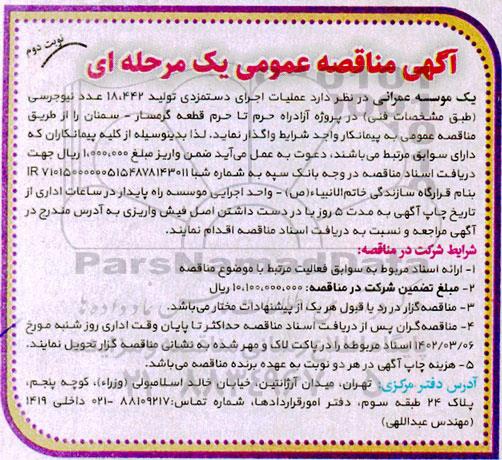 نوبت دوم
آگهی مناقصه عمومی یک مرحله ای
یک موسسه عمرانی در نظر دارد عملیات اجرای دستمزدی تولید ۱۸،۴۴۲ عدد نیوجرسی
(طبق مشخصات فنی) در پروژه آزادراه حرم تا حرم قطعه گرمسار - سمنان را از طریق
مناقصه عمومی به پیمانکار واجد شرایط واگذار نماید، لذا بدینوسیله از کلیه پیمانکاران که
دارای سوابق مرتبط می‌باشند، دعوت به عمل می‌آید ضمن واریز مبلغ ۱،۰۰۰،۰۰۰ ریال جهت
دریافت اسناد مناقصه در وجه بانک سپه به شماره شبا IR ۷۱۰۱۵۰۰۰۰۰۰۵۱۵۴۸۷۸۱۴۳۰۱۱
بنام قرارگاه سازندگی خاتم‌الانبیاء(ص) - واحد اجرایی موسسه راه پایدار در ساعات اداری از
تاریخ چاپ آگهی به مدت ۵ روز با در دست داشتن اصل فیش واریزی به آدرس مندرج در
آگهی مراجعه و نسبت به دریافت اسناد مناقصه اقدام نمایند.
شرایط شرکت در مناقصه:
۱- ارائه اسناد مربوط به سوابق فعالیت مرتبط با موضوع مناقصه
۲- مبلغ تضمین شرکت در مناقصه: ۱۰،۱۰۰،۰۰۰،۰۰۰ ریال
۳- مناقصه‌گزار در رد یا قبول هر یک از پیشنهادات مختار می‌باشد.
۴- مناقصه‌گران پس از دریافت اسناد مناقصه حداکثر تا پایان وقت اداری روز شنبه مورخ
۱۴۰۲/۰۳/۰۶ اسناد مربوطه را در پاکت لاک و مهر شده به نشانی مناقصه گزار تحویل نمایند.
۵- هزینه چاپ آگهی در هر دو نوبت به عهده برنده مناقصه می‌باشد.
آدرس دفتر مرکزی: تهران، میدان آرژانتین، خیابان خالد اسلامبولی (وزراء)، کوچه پنجم،
پلاک ۲۴ طبقه سوم، دفتر امورقراردادها، شماره تماس: ۸۸۱۰۹۲۱۷-۰۲۱ داخلی ۱۴۱۹
(مهندس عبداللهی)
ParsNamadData